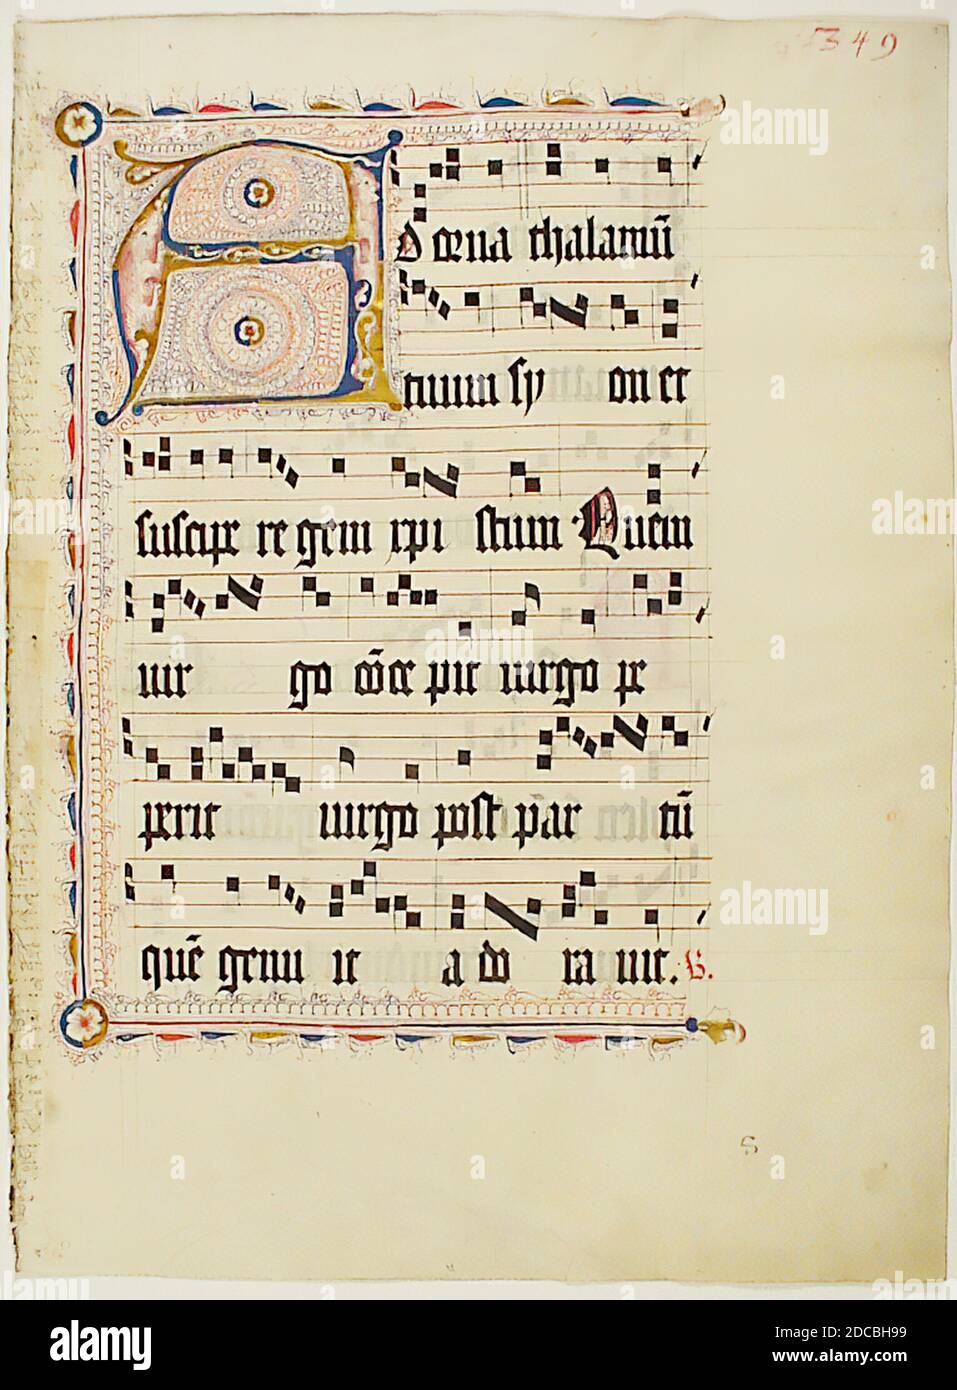 349
Adorna thalamū
tuum sy on et
suscipe regem xpi stum Quem
uir go cōce pit uirgo pe
perit uirgo post par tū
quē genu it a do ra uit. V.
S
alamy
Image ID: 2DCBH99
www.alamy.com